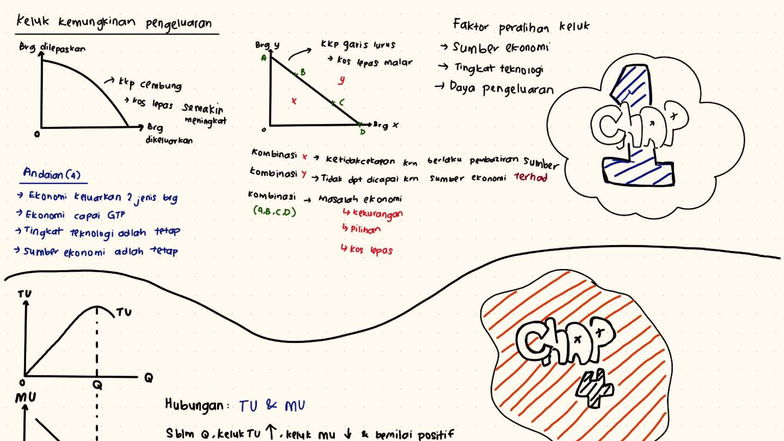 Keluk kemungkinan pengeluaran
Brg dilepaskan
→ KKP cembung
↳ kos lepas semakin meningkat
0
Brg dikeluarkan
Andaian (4)
→ Ekonomi keluarkan 2 jenis brg
→ Ekonomi capai GTP
→ Tingkat teknologi adlah tetap
→ Sumber ekonomi adlah tetap
Brg y
A
B
C
D
x
y
0
Brg x
KKP garis lurus
↳ kos lepas malar
Kombinasi x → Ketidakcekapan krn berlaku pembaziran sumber
Kombinasi y → Tidak dpt dicapai krn sumber ekonomi terhad
Kombinasi → Masalah ekonomi
(A.B.C.D)
↳ kekurangan
↳ Pilihan
↳ kos lepas
Faktor peralihan keluk
→ Sumber ekonomi
→ Tingkat teknologi
→ Daya pengeluaran
CHAP
1
TU
TU
0
Q
Q
MU
Hubungan: TU & MU
Sblm Q, keluk TU ↑, keluk mu ↓ & bernilai positif
CHAP
4